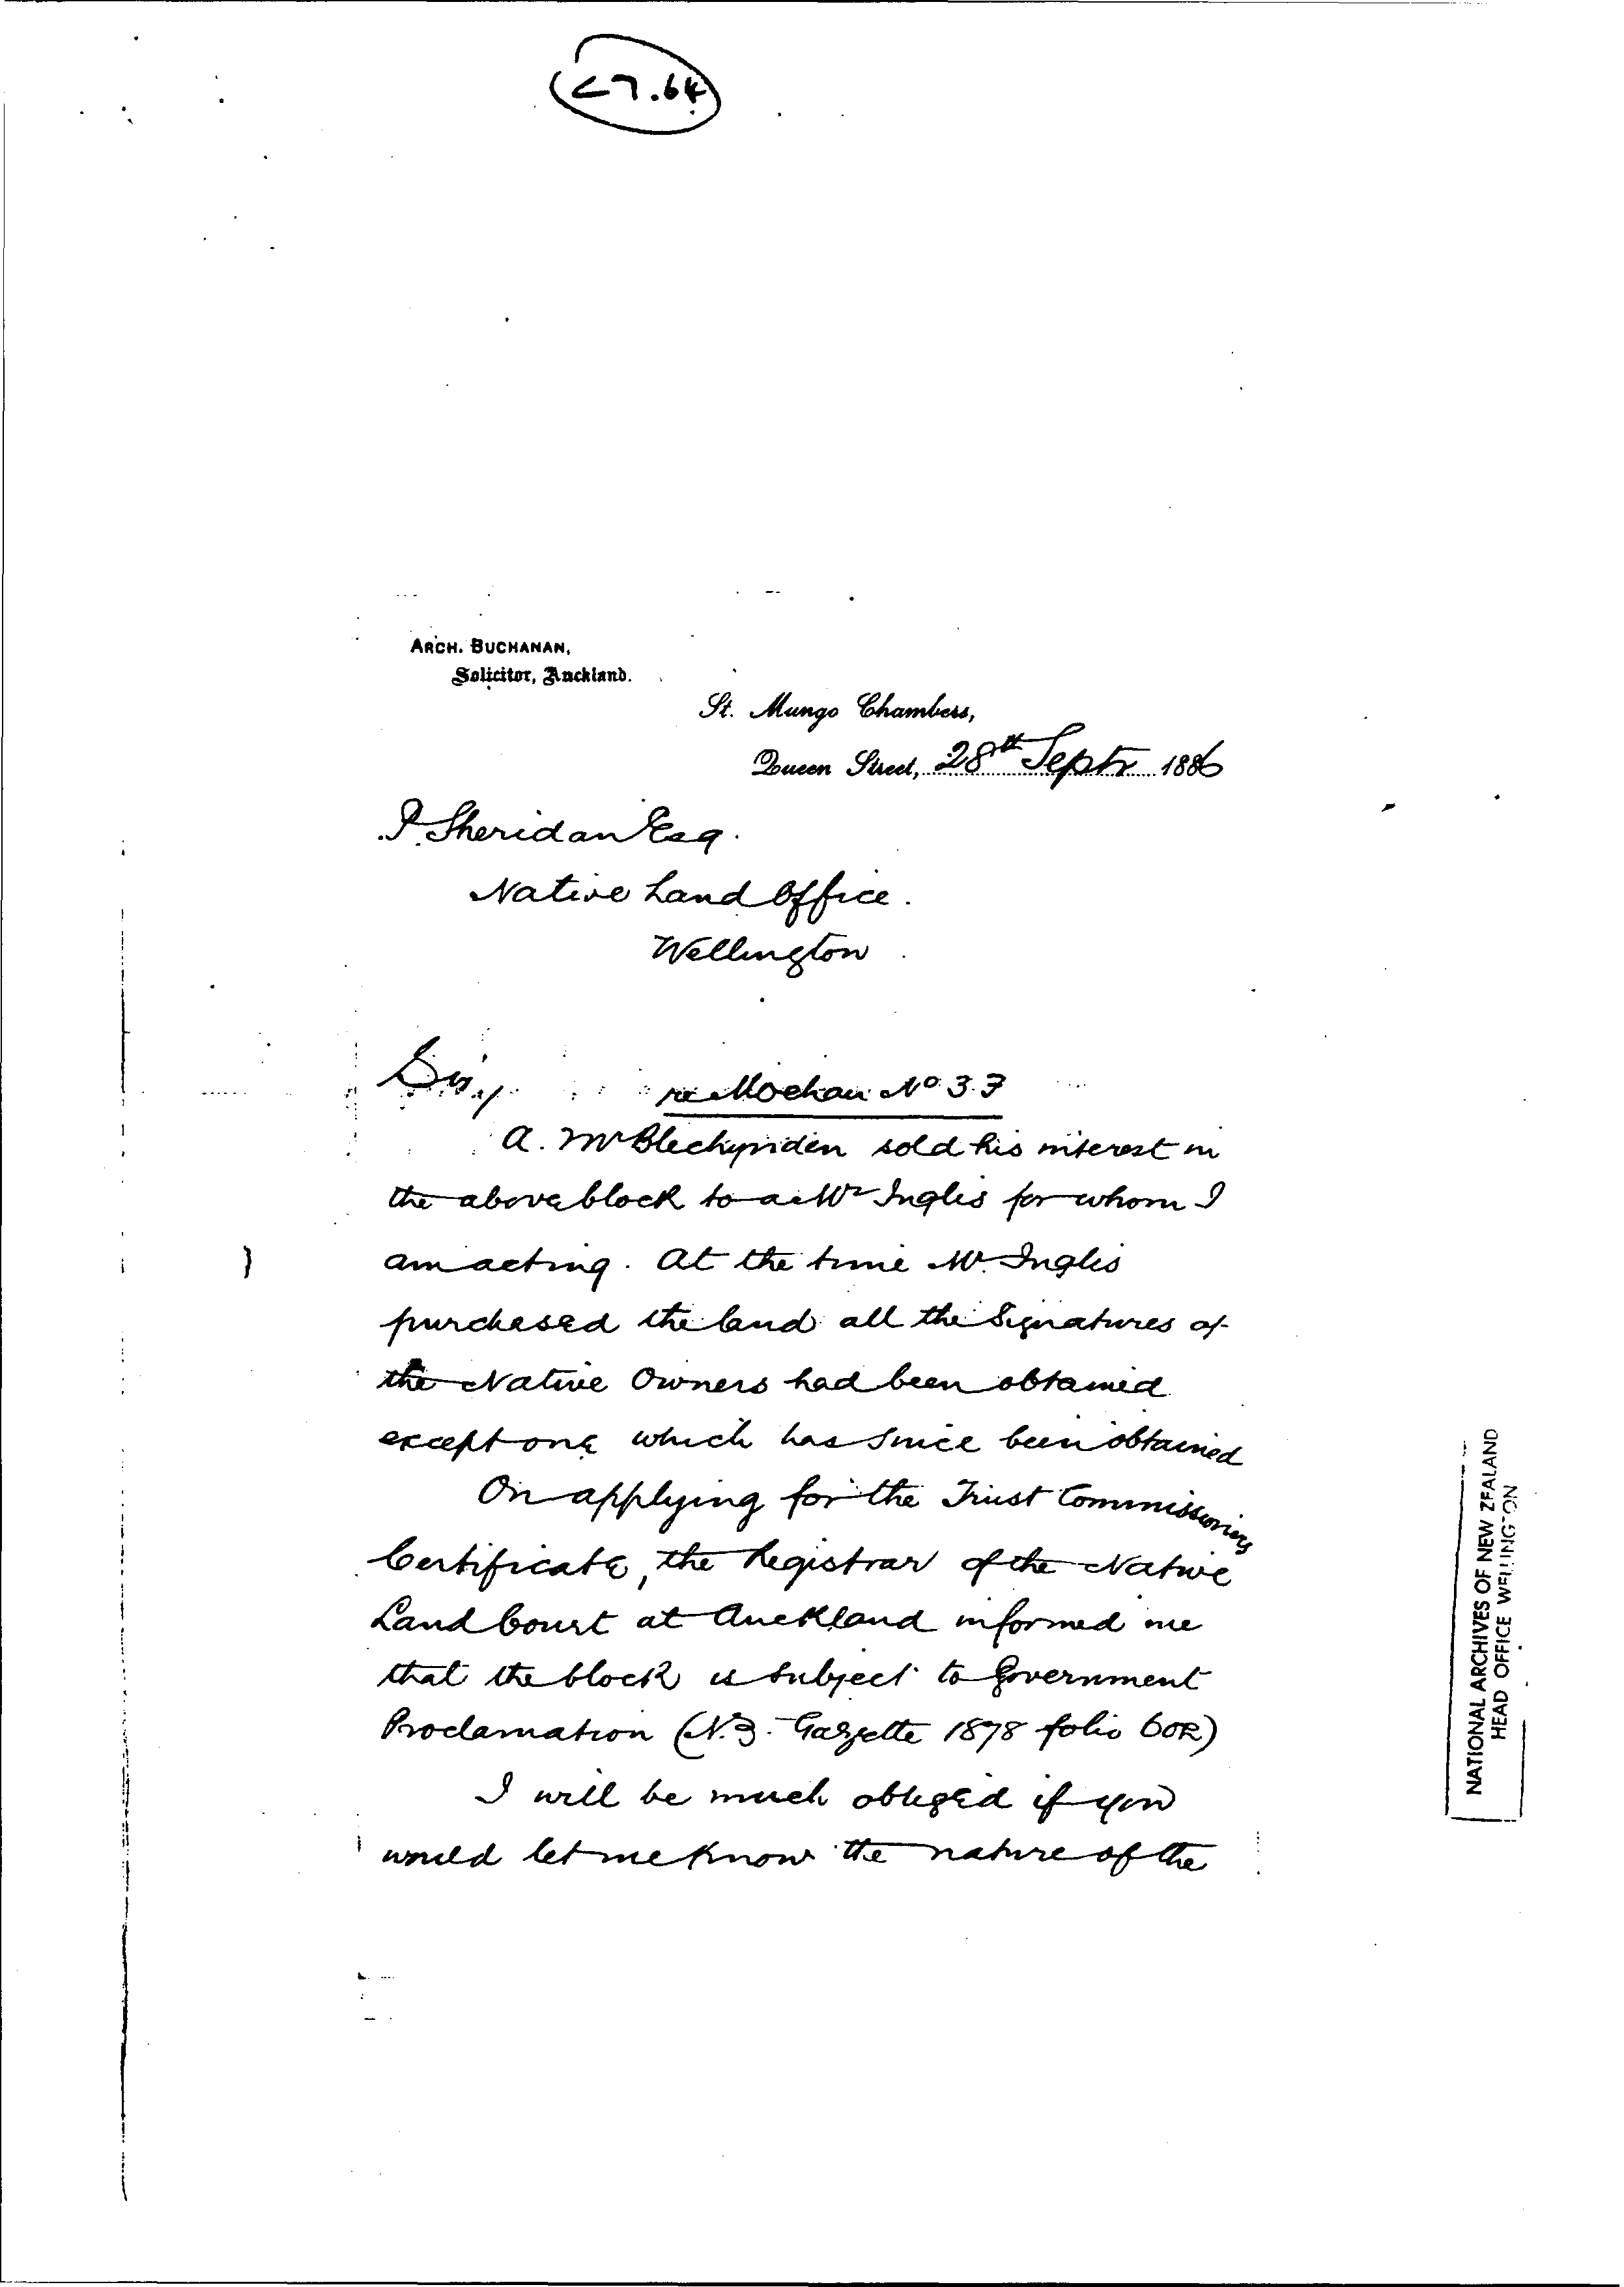 27.64
ARCH. BUCHANAN,
Solicitor, Auckland.
St. Mungo Chambers,
Queen Street, 28th Septr 1886
P. Sheridan Esq.
Native Land Office.
Wellington
Sir,
re Moehau No 3.3
A. Mr Blechynden sold his interest in
the above block to a Mr Inglis for whom I
am acting. At the time Mr. Inglis
purchased the land all the Signatures of
the Native Owners had been obtained
except one which has since been obtained
On applying for the Trust Commissioners
Certificate, the Registrar of the Native
Land Court at Auckland informed me
that the block is subject to Government
Proclamation (N.Z. Gazette 1878 folio 602)
I will be much obliged if you
would let me know the nature of the
NATIONAL ARCHIVES OF NEW ZEALAND
HEAD OFFICE WELLINGTON